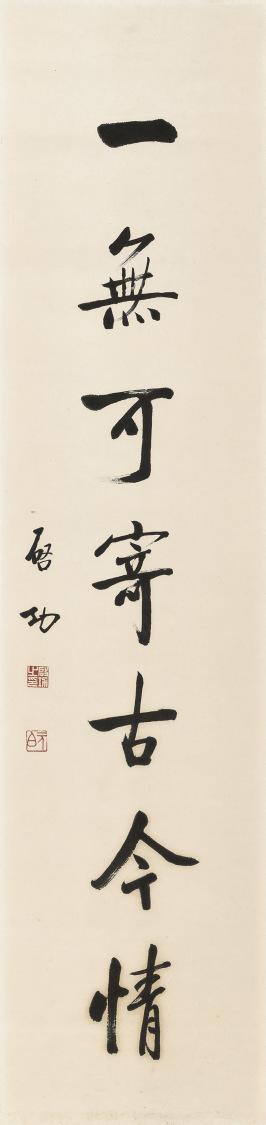 一無可寄古今情
啓功